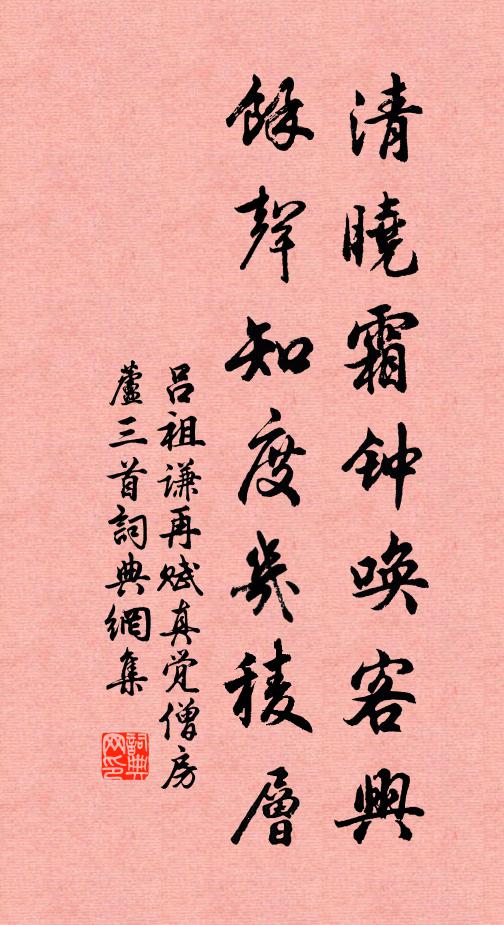 清曉霜钟唤客興
餘聲知度幾稜層
吕祖谦再赋真觉僧房
蘆三首詞典網集
詞典网印